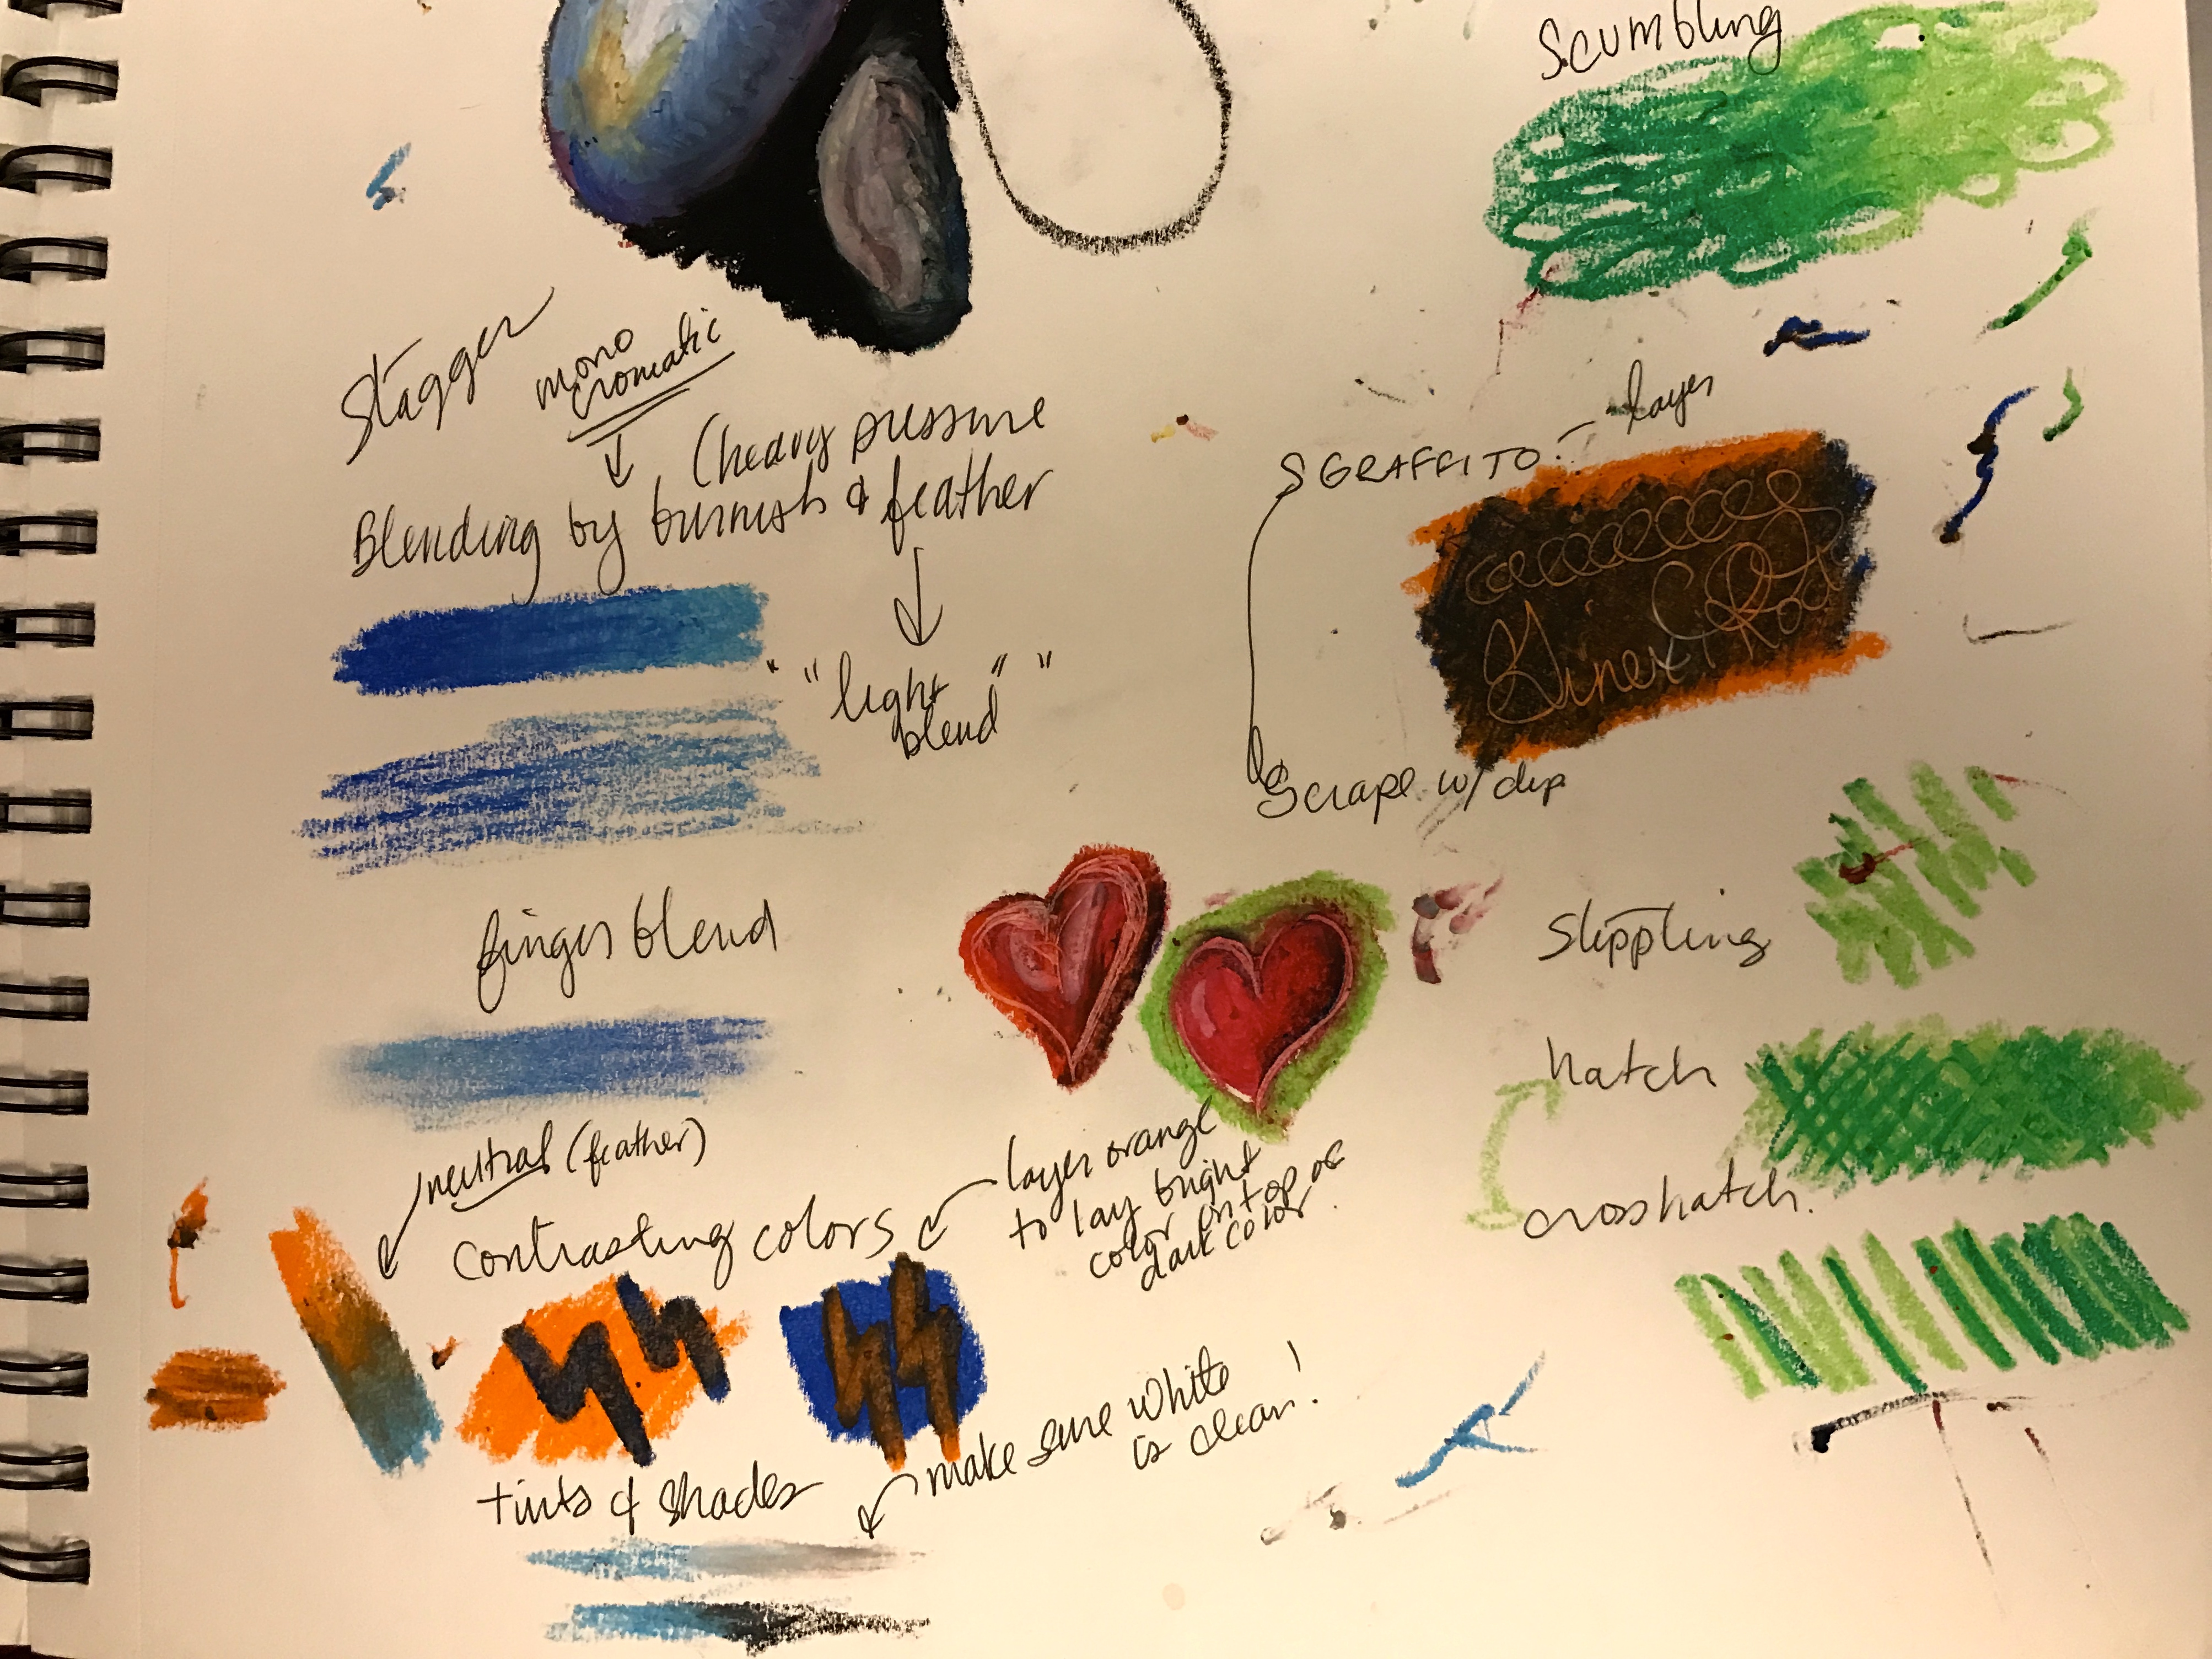 Scumbling
Stagger
mono
cromatic
(heavy pressure
Blending by burnish & feather
" "light" "
blend
SGRAFFITO - layer
Scrape w/
finger blend
Stippling
hatch
crosshatch.
neutral (feather)
contrasting colors
layer orange
to lay bright
color on top of
dark color.
tints & shades
make sure white
is clean!